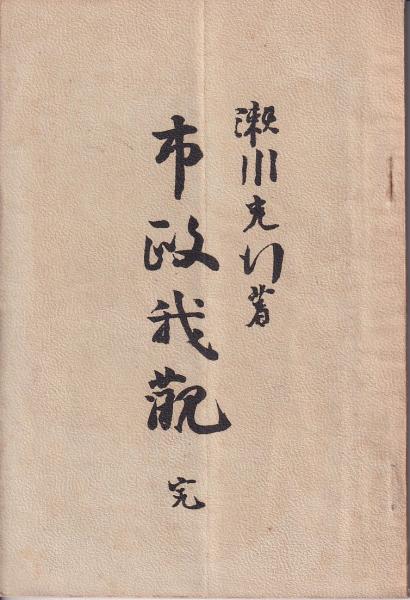 瀬川光行著
市政我観 完